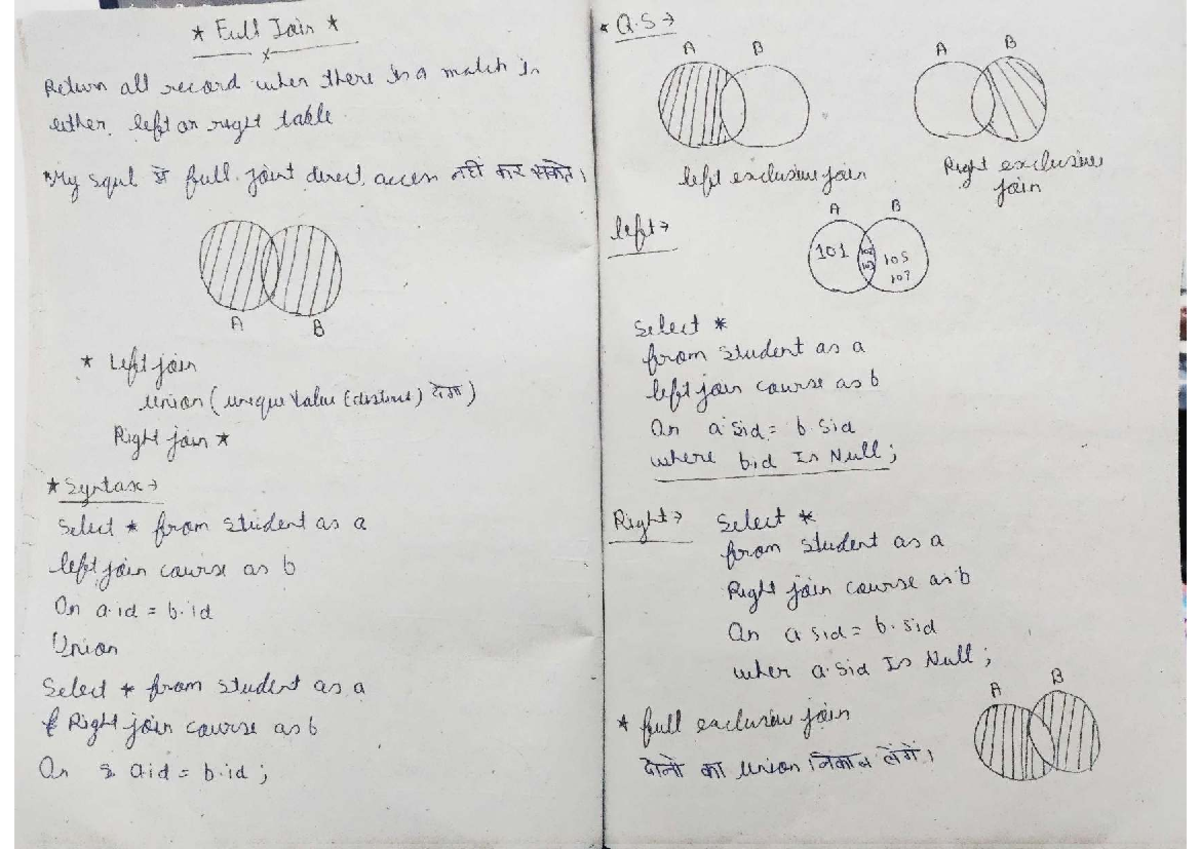 * Full Join *
Return all record when there is a match in
either left or right table
*My Squl में full joint direct access नहीं कर सकते।
A B
* Left join
union (unique value (distinct) देगा)
Right join *
* Syntax →
Select * from student as a
left join course as b
On a.id = b.id
Union
Select * from student as a
Right join course as b
On a.id = b.id ;
* Q.S →
A B
A B
left exclusive join
Right exclusive
join
left →
A B
101
105
107
Select *
from student as a
left join course as b
On a.sid = b.sid
where b.id Is Null ;
Right →
Select *
from student as a
Right join course as b
On a.sid = b.sid
wher a.sid Is Null ;
* full exclusive join
दोनो का union निकाल लेंगें।
A B